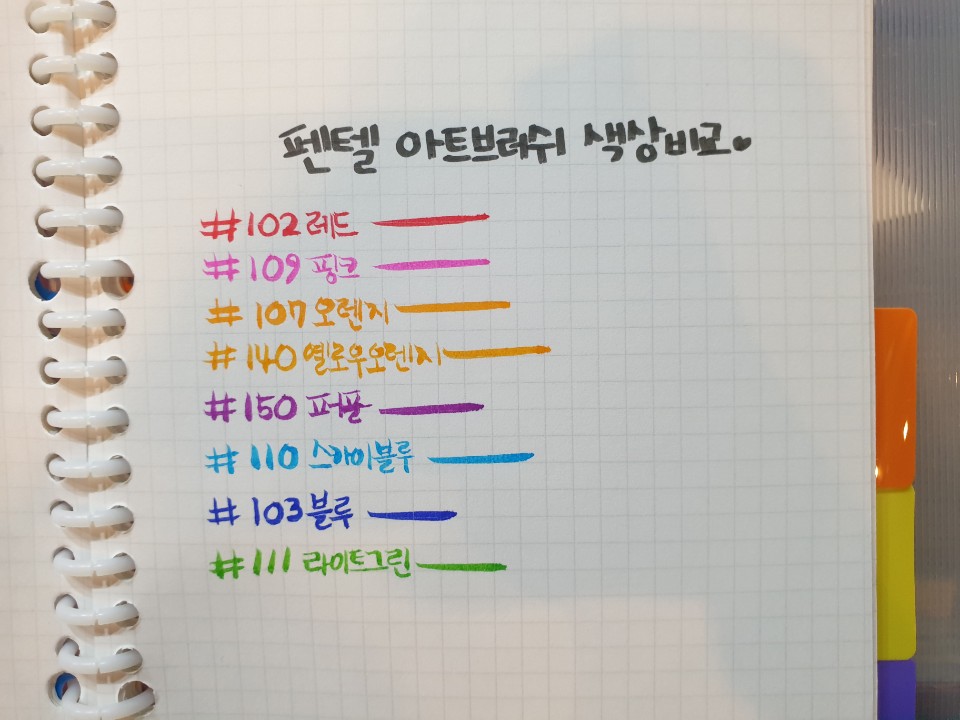 펜텔 아트브러쉬 색상비교
#102 레드
#109 핑크
#107 오렌지
#140 옐로우오렌지
#150 퍼플
#110 스카이블루
#103 블루
#111 라이트그린